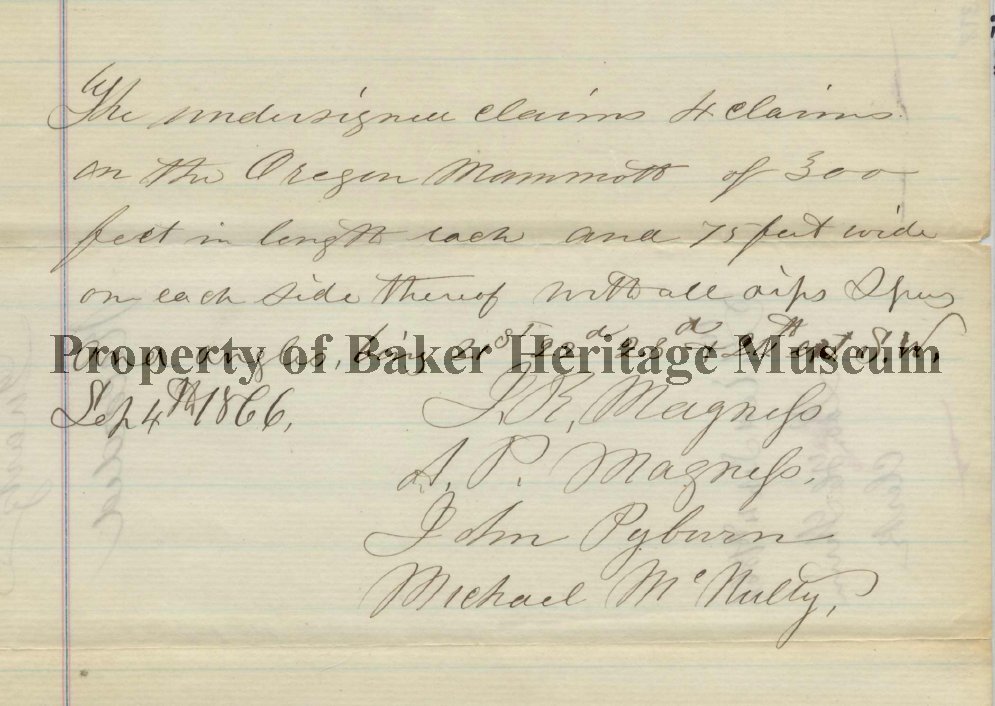 The undersigned claims 4 claims
on the Oregon Mammoth of 300
feet in length each and 75 feet wide
on each side thereof with all dips Spurs
and angles, being 21st 22d 23d & 24th S.W,
Property of Baker Heritage Museum
Sep 4th 1866,
J. R. Magness
A. P. Magness,
John Pyburn
Michael McNulty,